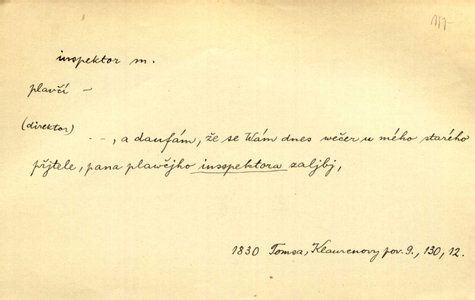 inspektor m.
plavčí –
(direktor) - -, a daufám, že se Wám dnes wečer u mého starého
přjtele, pana plawčjho insspektora zaljbj,
1830 Tomsa, Klaurenovy pov. 9., 130, 12.